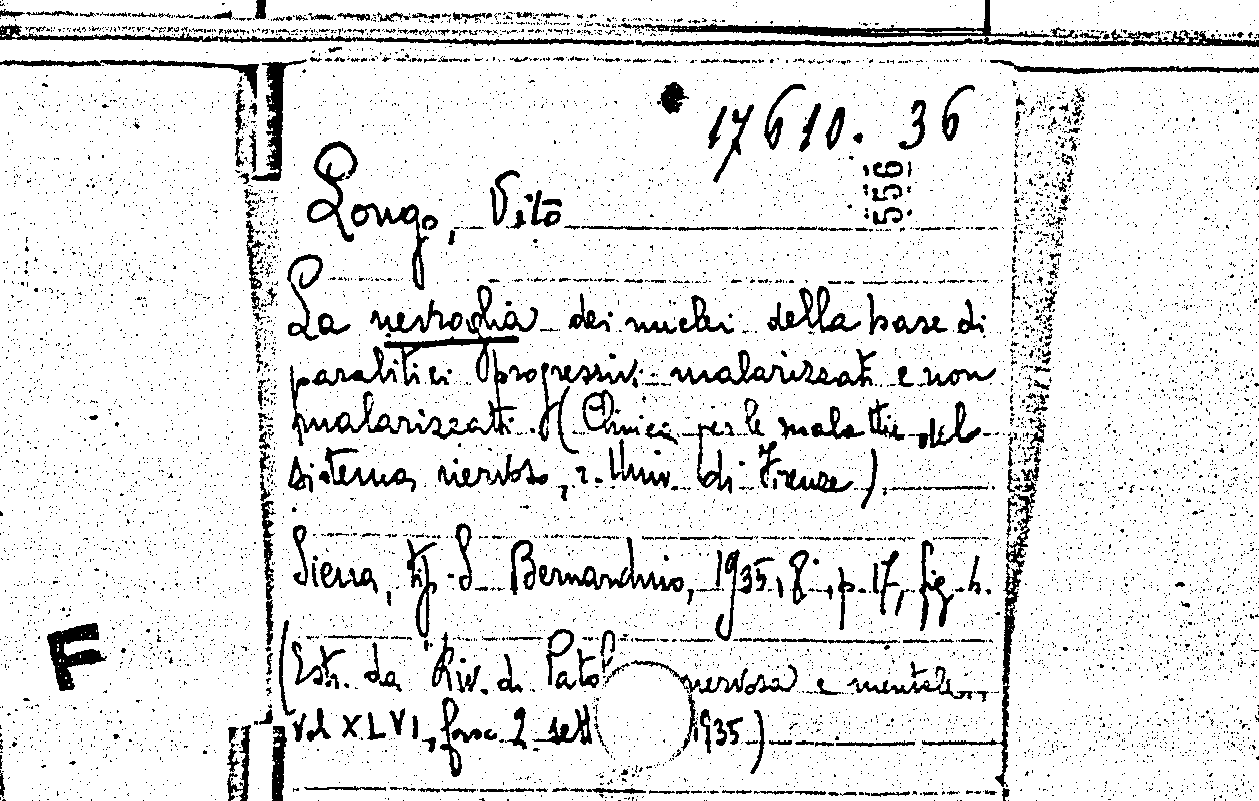 17610. 36
556
Longo, Vito
La nevroglia dei nuclei della base di
paralitici progressivi malarizzati e non
malarizzati. (Clinica per le malattie del
sistema nervoso, r. Univ. di Firenze).
Siena, tip. S. Bernardino, 1935, 8°, p. 17, fig. h.
(Estr. da Riv. di Patol nervosa e mentale,
vol XLVI, fasc. 2 sett 1935)
F